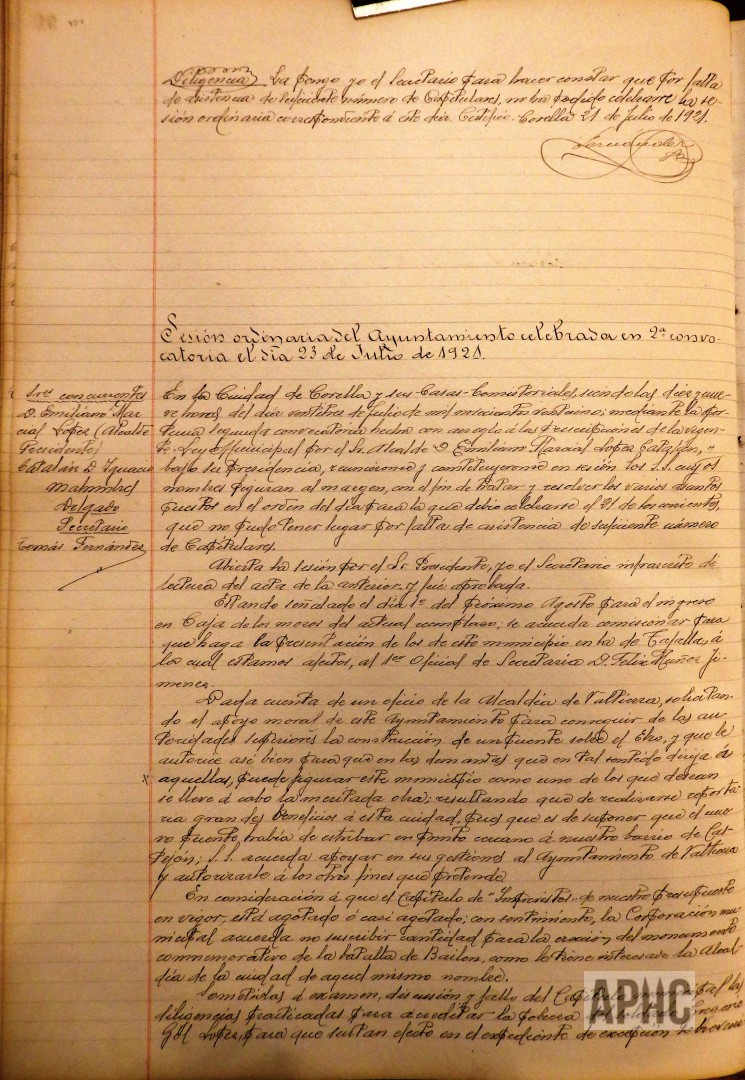 Diligencia / La pongo yo el Secretario para hacer constar que por falta
de asistencia de suficiente número de Capitulares, no ha podido celebrarse la se-
sión ordinaria correspondiente á este día. Certifico. Corella 21 de Julio de 1921.
Fernández
Sesión ordinaria del Ayuntamiento celebrada en 2ª convo-
catoria el día 23 de Julio de 1921.
Sres concurrentes
D. Emiliano Mar-
cial López (Alcalde
Presidente)
Catalán D. Ignacio
Malumbres
Delgado
Secretario
Tomás Fernández
En la Ciudad de Corella y sus Casas-Consistoriales siendo las diez y nue-
ve horas del día veintitres de Julio de mil novecientos veintiuno; mediante la opor-
tuna segunda convocatoria hecha con arreglo á las prescripciones de la vigen-
te Ley Municipal por el Sr. Alcalde D. Emiliano Marcial López Catalán, y
bajo su Presidencia, reuniéronse y constituyéronse en sesión los S.S. cuyos
nombres figuran al margen, con el fin de tratar y resolver los varios asuntos
puestos en el orden del día para la que debió celebrarse el 21 de los corrientes,
que no pudo tener lugar por falta de asistencia de suficiente número
de Capitulares.
Abierta la sesión por el Sr. Presidente, yo el Secretario infrascrito dí
lectura del acta de la anterior y fué aprobada.
Estando señalado el día 1º del próximo Agosto para el ingreso
en Caja de los mozos del actual reemplazo; se acuerda comisionar para
que haga la presentación de los de este municipio en la de Tafalla, á
la cual estamos afectos, al 1er Oficial de Secretaría D. Félix Muñoz Ji-
menez.
Dada cuenta de un oficio de la Alcaldía de Valtierra, solicitan-
do el apoyo moral de este Ayuntamiento para conseguir de las au-
toridades superiores la construcción de un puente sobre el Ebro, y que le
autorice así bien para que en las demandas que en tal sentido dirija á
aquellas, puede figurar este municipio como uno de los que desean
se lleve á cabo la meritada obra; resultando que de realizarse reporta-
ria grandes beneficios á esta ciudad, pues que es de suponer que el nue-
vo puente, habia de estribar en punto cercano á nuestro barrio de Cas-
tejón; S.S. acuerda apoyar en sus gestiones al Ayuntamiento de Valtierra
y autorizarle á los otros fines que pretende.
En consideración á que el Capítulo de "Imprevistos" de nuestro presupuesto
en vigor, está agotado ó casi agotado; con sentimiento, la Corporación mu-
nicipal acuerda no suscribir cantidad para la erección del monumento
conmemorativo de la batalla de Bailén, como le tiene interesado la Alcal-
día de la ciudad de aquel mismo nombre.
Sometidas á examen, discusión y fallo del las
diligencias practicadas para acreditar la pobreza Gregorio
Gil López, para que surtan efecto en el expediente de excepción
APHC